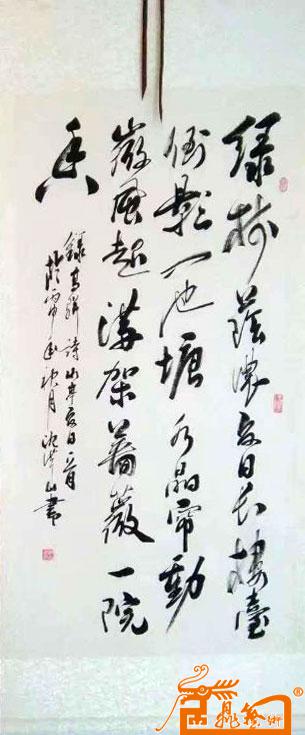 绿树荫浓夏日长楼台
倒影入池塘水晶帘动
微风起满架蔷薇一院
香
录高骈诗山亭夏日一首
书